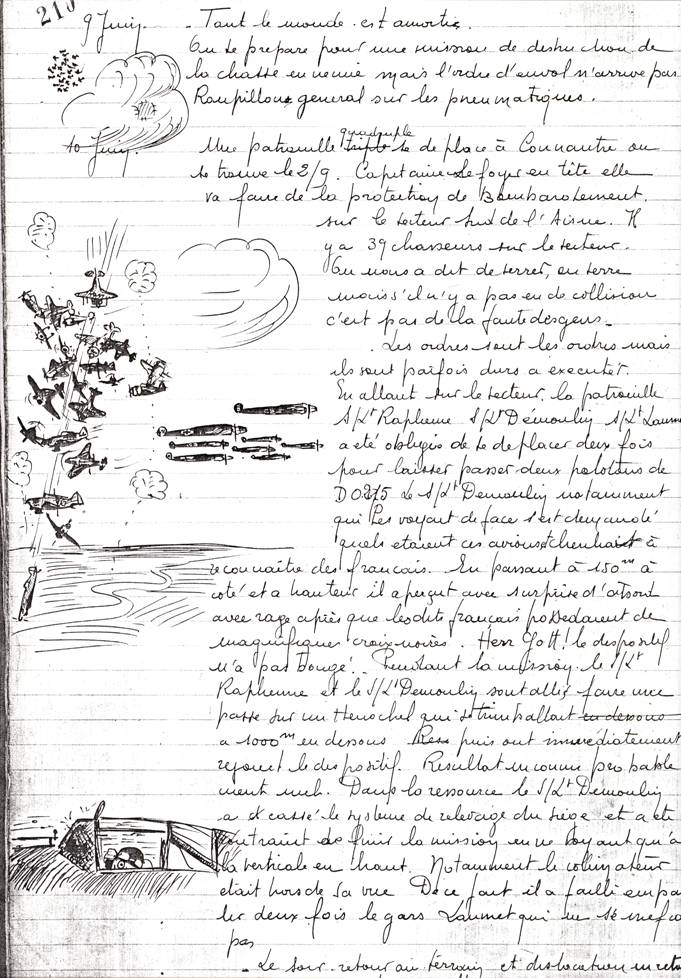 210
9 Juin. - Tout le monde est amorti.
On se prepare pour une mission de destruction de
la chasse ennemie mais l'ordre d'envol n'arrive pas
Roupillon general sur les pneumatiques.
quadruple
10 Juin. Une patrouille triple se deplace à Connantre ou
se trouve le 2/9. Capitaine Lefoyer en tête elle
va faire de la protection de Bombardement.
sur le secteur Sud de l'Aisne. Il
y a 39 chasseurs sur le secteur.
On nous a dit de serrer, on serre
mais s'il n'y a pas eu de collision
c'est pas de la faute des gens.
. Les ordres sont les ordres mais
ils sont parfois durs a executer.
En allant sur le secteur, la patrouille
S/Lt Raphenne S/Lt Démoulin S/Lt Laum
a été obligés de se deplacer deux fois
pour laisser passer deux pelotons de
DO215 Le S/Lt Demoulin notamment
qui les voyant de face s'est demandé
quels etaient ces avions cherchait à
reconnaître des francais. En passant à 150m à
coté et a hauteur il aperçut avec surprise d'abord
avec rage après que lesdits français possedaient de
magnifiques croix noires. Herr Gott! le dispositif
n'a pas bougé. Pendant la mission le S/Lt
Raphenne et le S/Lt Demoulin sont allés faire une
passe sur un Henschel qui se trimballait en dessous
a 1000m en dessous puis ont immédiatement
rejoint le dispositif. Resultat inconnu probable
ment nul. Dans la ressource le S/Lt Demoulin
a cassé le systeme de relevage du siège et a été
contraint de finir la mission en ne voyant qu'à
la verticale en haut. Notamment le collimateur
etait hors de sa vue De ce fait il a failli empa
ler deux fois le gars Laumet qui ne se mefia
pas
- Le soir retour au terrain et dislocation